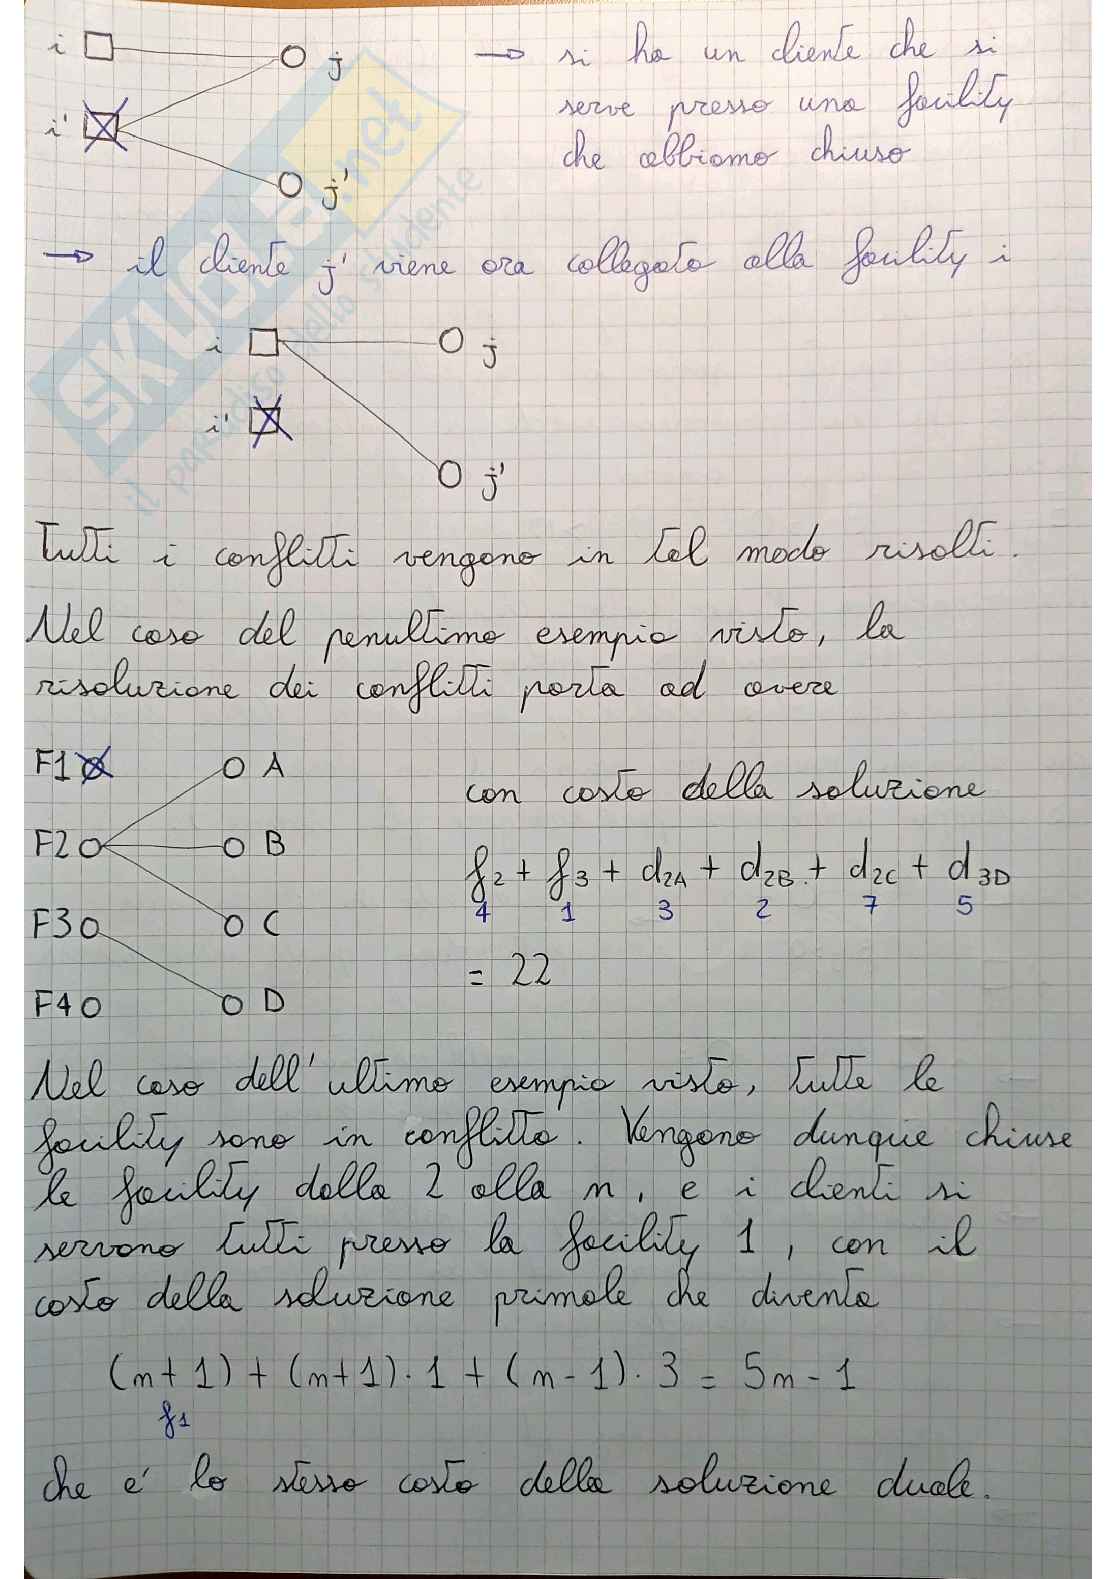 i j → si ha un cliente che si
serve presso una facility
i' che abbiamo chiuso
j'
→ il cliente j' viene ora collegato alla facility i
i j
i'
j'
Tutti i conflitti vengono in tal modo risolti.
Nel caso del penultimo esempio visto, la
risoluzione dei conflitti porta ad avere
F1 A
con costo della soluzione
F2 B
f2 + f3 + d2A + d2B + d2C + d3D
4 1 3 2 7 5
F3 C
= 22
F4 D
Nel caso dell'ultimo esempio visto, tutte le
facility sono in conflitto. Vengono dunque chiuse
le facility dalla 2 alla n, e i clienti si
servono tutti presso la facility 1, con il
costo della soluzione primale che diventa
(n+1) + (n+1)·1 + (n-1)·3 = 5n-1
f1
che e' lo stesso costo della soluzione duale.
SKUOLA.net
il paradiso dello studente